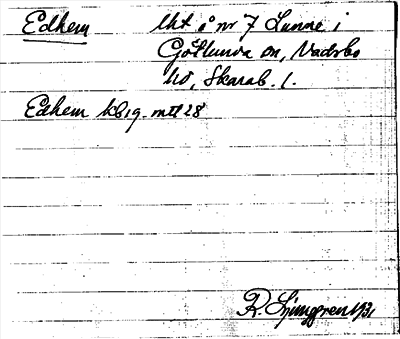 Edhem lht å nr 7 Lunne i
Götlunda sn, Vadsbo
hd, Skarab. l.
Edhem kbig. mtl 28
R. Ljunggren 1931